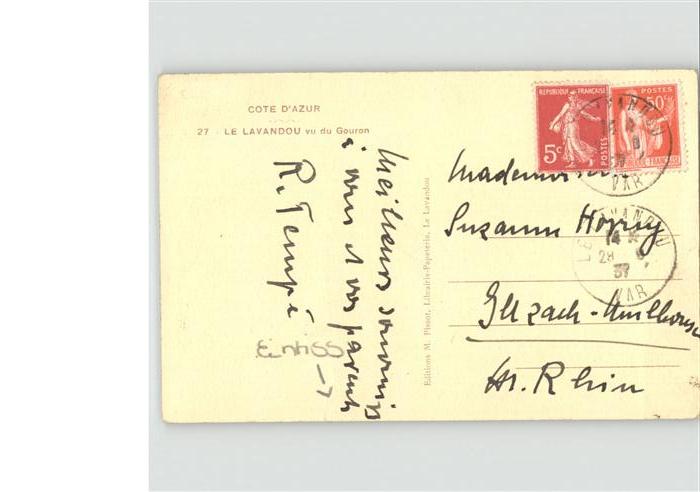 COTE D'AZUR
27 - LE LAVANDOU vu du Gouron
Meilleurs souvenirs
à vous et vos parents
R. Tempé
Editions M. Pissot, Librairie-Papeterie, Le Lavandou
REPUBLIQUE FRANÇAISE
5c
POSTES
POSTES
50c
VAR
LE LAVANDOU
14
28
37
VAR
Mademoiselle
Suzanne
Illzach-Mulhouse
Ht. Rhin